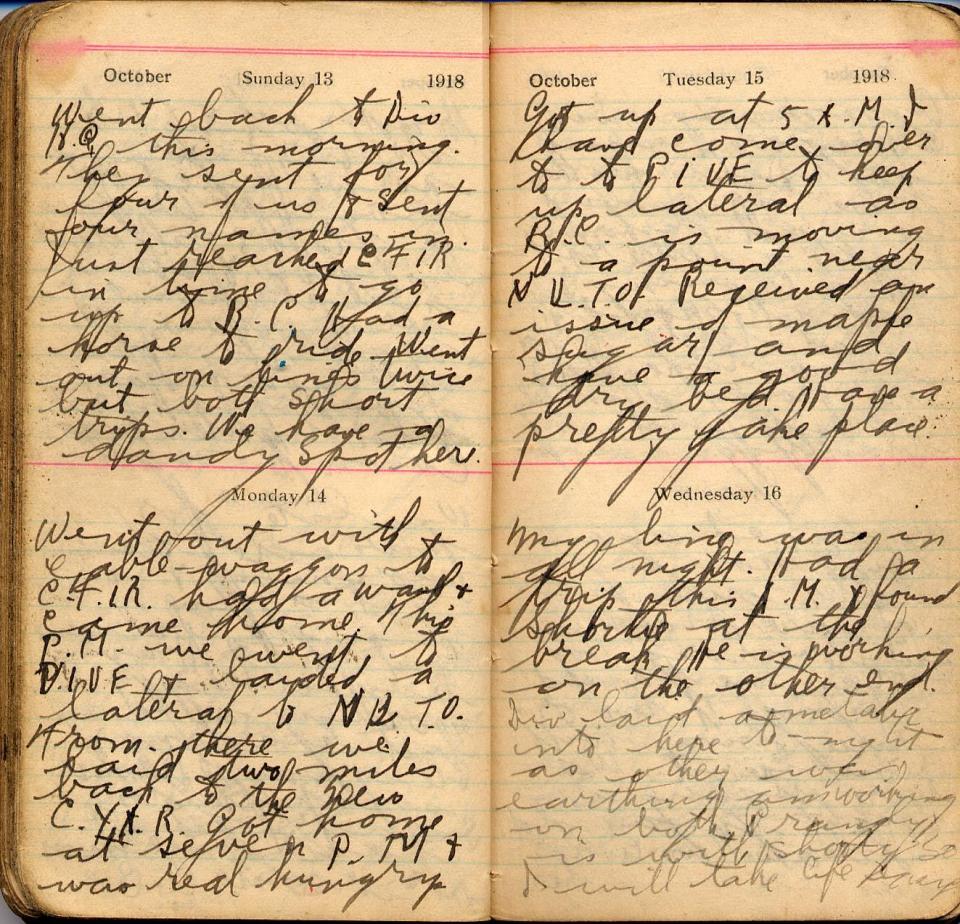 October Sunday 13 1918
Went back to Div
H.Q this morning.
They sent for
four of us & sent
four names in.
Just reached C F I R
in time to go
up to B.C. Had a
horse to ride Went
out on lines twice
but both short
trips. We have a
dandy spot her.
Monday 14
Went out with
cable waggon to
C.F.I.R. had a wash +
came home This
P.M. we went to
DIVE laided a
lateral to
From there we
laid two miles
back to the new
C. R. Got home
at seven P.M +
was real hungry
October Tuesday 15 1918
Got up at 5 A.M. I
have come over
to to DIVE to keep
up lateral as
B.C. is moving
to a point near
Received an
issue of maple
sugar and
have a good
dry bed. Have a
pretty jake place.
Wednesday 16
My line was in
all night. Had a
trip this A.M. & found
Shortie at the
break. He is working
on the other end.
Div laid a
into here to-night
as other was
earthing am working
on both.
is with Shorty So
I will take life easy